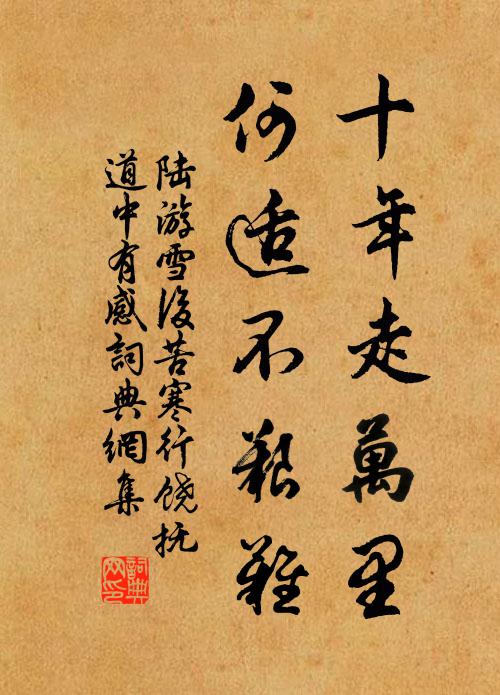 十年走萬里
何适不艱難
陆游雪後苦寒行饶抚
道中有感詞典網集
詞典网印